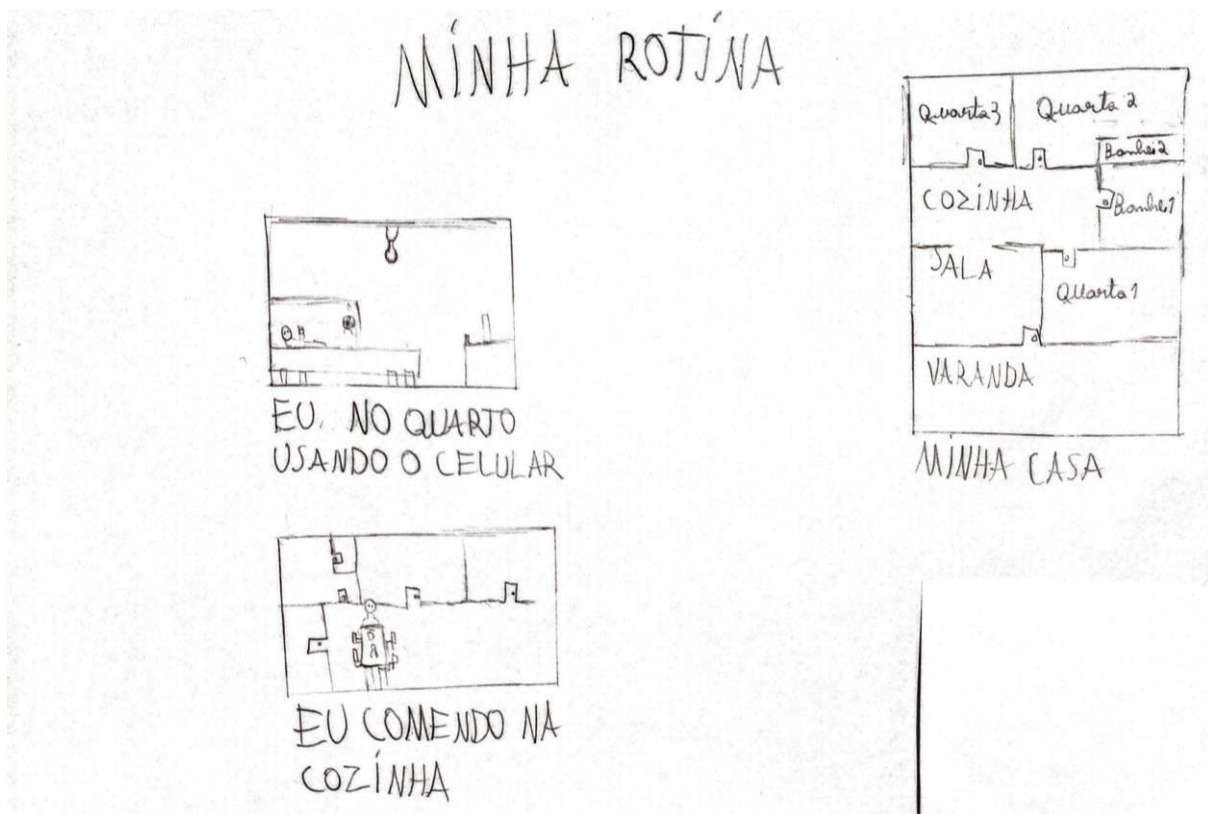 MINHA ROTINA
Quarto 3
Quarto 2
Banhei 2
COZINHA
Banhei 1
SALA
Quarto 1
VARANDA
MINHA CASA
EU. NO QUARTO
USANDO O CELULAR
EU COMENDO NA
COZINHA